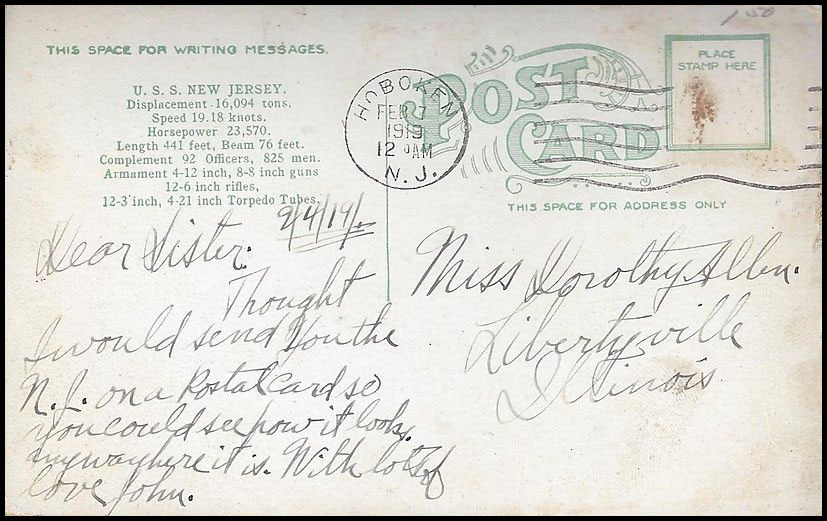 1 50
THIS SPACE FOR WRITING MESSAGES.
U. S. S. NEW JERSEY.
Displacement 16,094 tons.
Speed 19.18 knots.
Horsepower 23,570.
Length 441 feet, Beam 76 feet.
Complement 92 Officers, 825 men.
Armament 4-12 inch, 8-8 inch guns
12-6 inch rifles,
12-3 inch, 4-21 inch Torpedo Tubes.
HOBOKEN
FEB 7
1919
12 AM
N. J.
POST
CARD
PLACE
STAMP HERE
THIS SPACE FOR ADDRESS ONLY
2/4/19/.
Dear Sister.
Thought
I would send You the
N. J. on a Postal Card so
you could see how it looks,
anyway here it is. With lots of
love John.
Miss Dorothy Allen.
Libertyville
Illinois